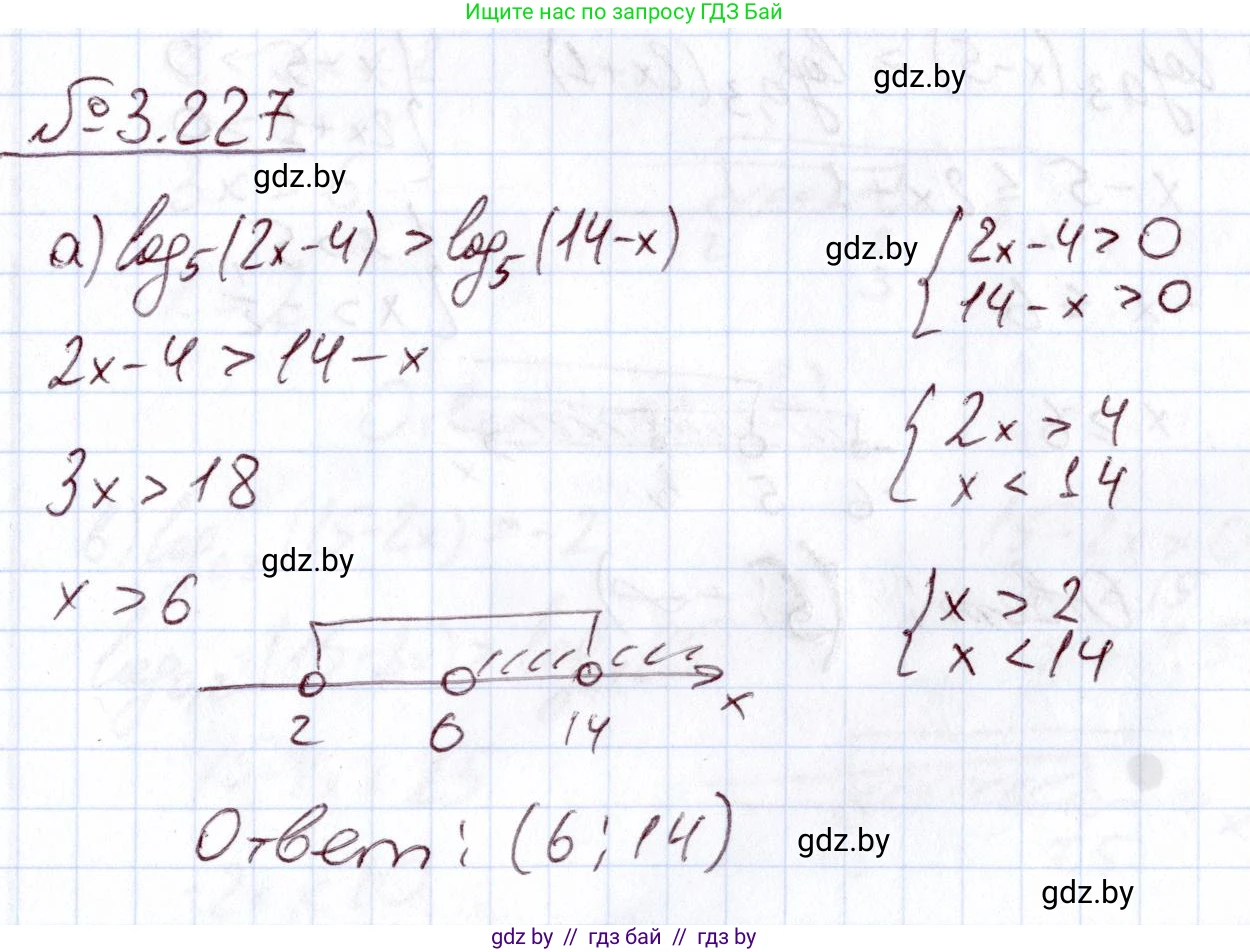 Ищите нас по запросу ГДЗ Бай
gdz.by
№ 3.227
gdz.by
а) log₅(2x-4) > log₅(14-x)
gdz.by
{ 2x-4 > 0
14-x > 0
2x-4 > 14-x
{ 2x > 4
x < 14
3x > 18
gdz.by
x > 6
{ x > 2
x < 14
2 6 14 x
Ответ: (6; 14)
gdz.by
gdz.by
gdz by // гдз бай // гдз by